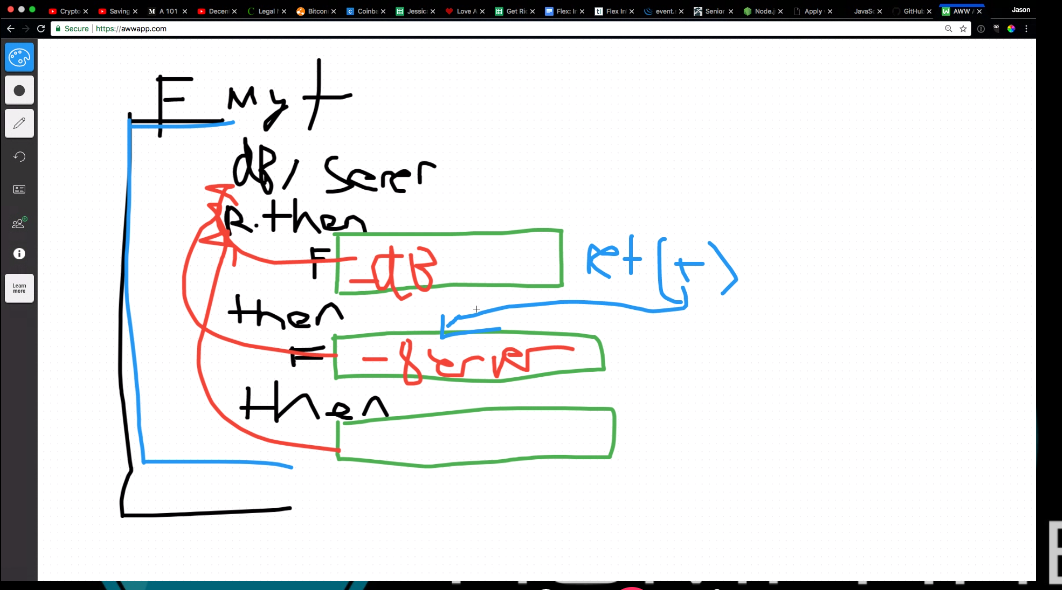 Crypto
Saving
A 101
Decen
Legal f
Bitcoin
Coinba
Jessic
Love A
Get Ric
Flex: In
Flex In
event.
Senior
Node.j
Apply
JavaSc
GitHub
AWW
Jason
Secure https://awwapp.com
Learn more
F My t
dB, Server
R.then
F
-dB
ret (t)
then
F
- Server
then